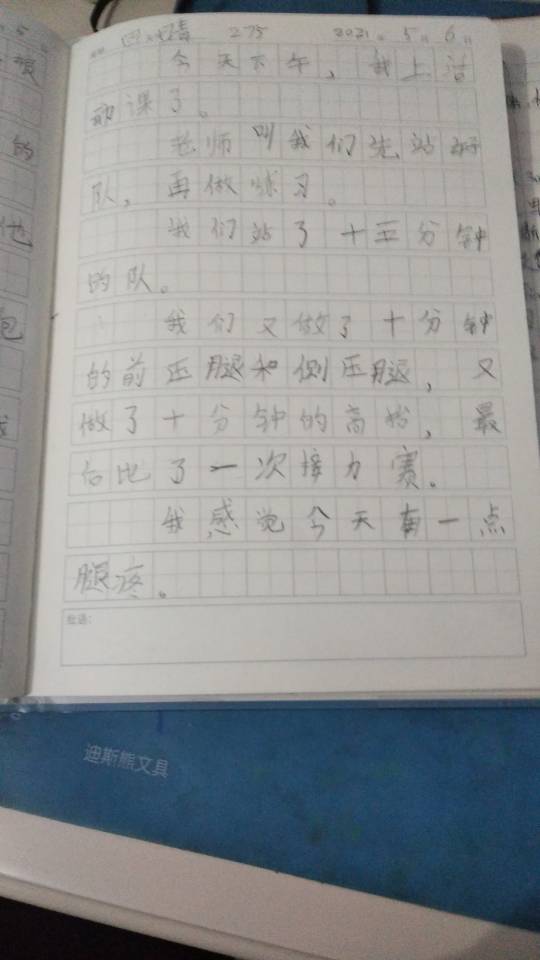 四 晴 275 2021年5月6日
今天下午,我上活
动课了。
老师叫我们先站好
队,再做练习。
我们站了十五分钟
的队。
我们又做了十分钟
的前压腿和侧压腿,又
做了十分钟的高抬,最
后比了一次接力赛。
我感觉今天有一点
腿疼。
批语:
迪斯熊文具